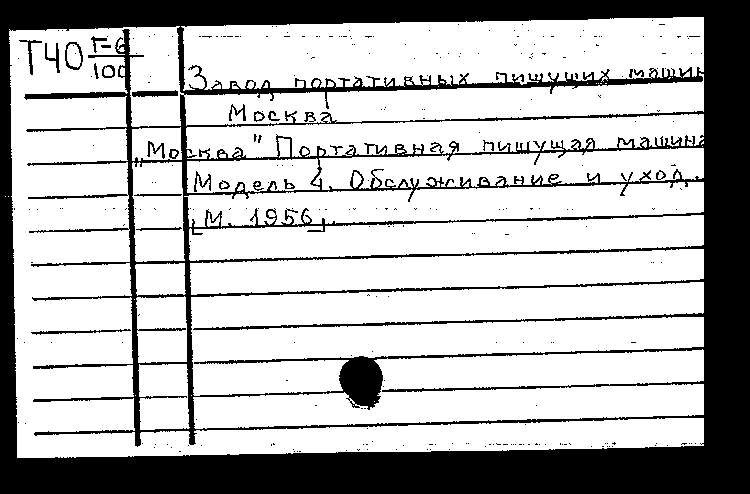 Т40 Г-6
100
Завод портативных пишущих машин
Москва
„Москва" Портативная пишущая машина
Модель 4. Обслуживание и уход.
[М. 1956].